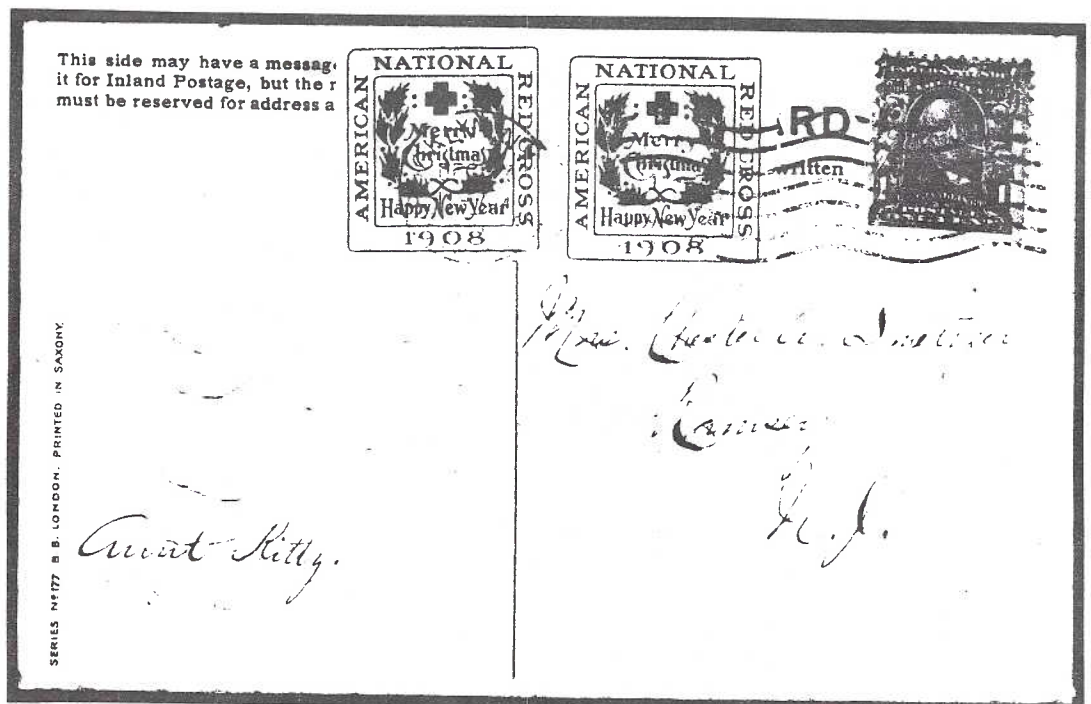 This side may have a messag
it for Inland Postage, but the r
must be reserved for address a
AMERICAN
NATIONAL
RED CROSS
Merry
Christmas
Happy New Year
1908
AMERICAN
NATIONAL
RED CROSS
Merry
Christmas
Happy New Year
1908
RD
written
Ramsey
N. J.
Aunt Kitty.
SERIES Nº 177 B B. LONDON. PRINTED IN SAXONY.